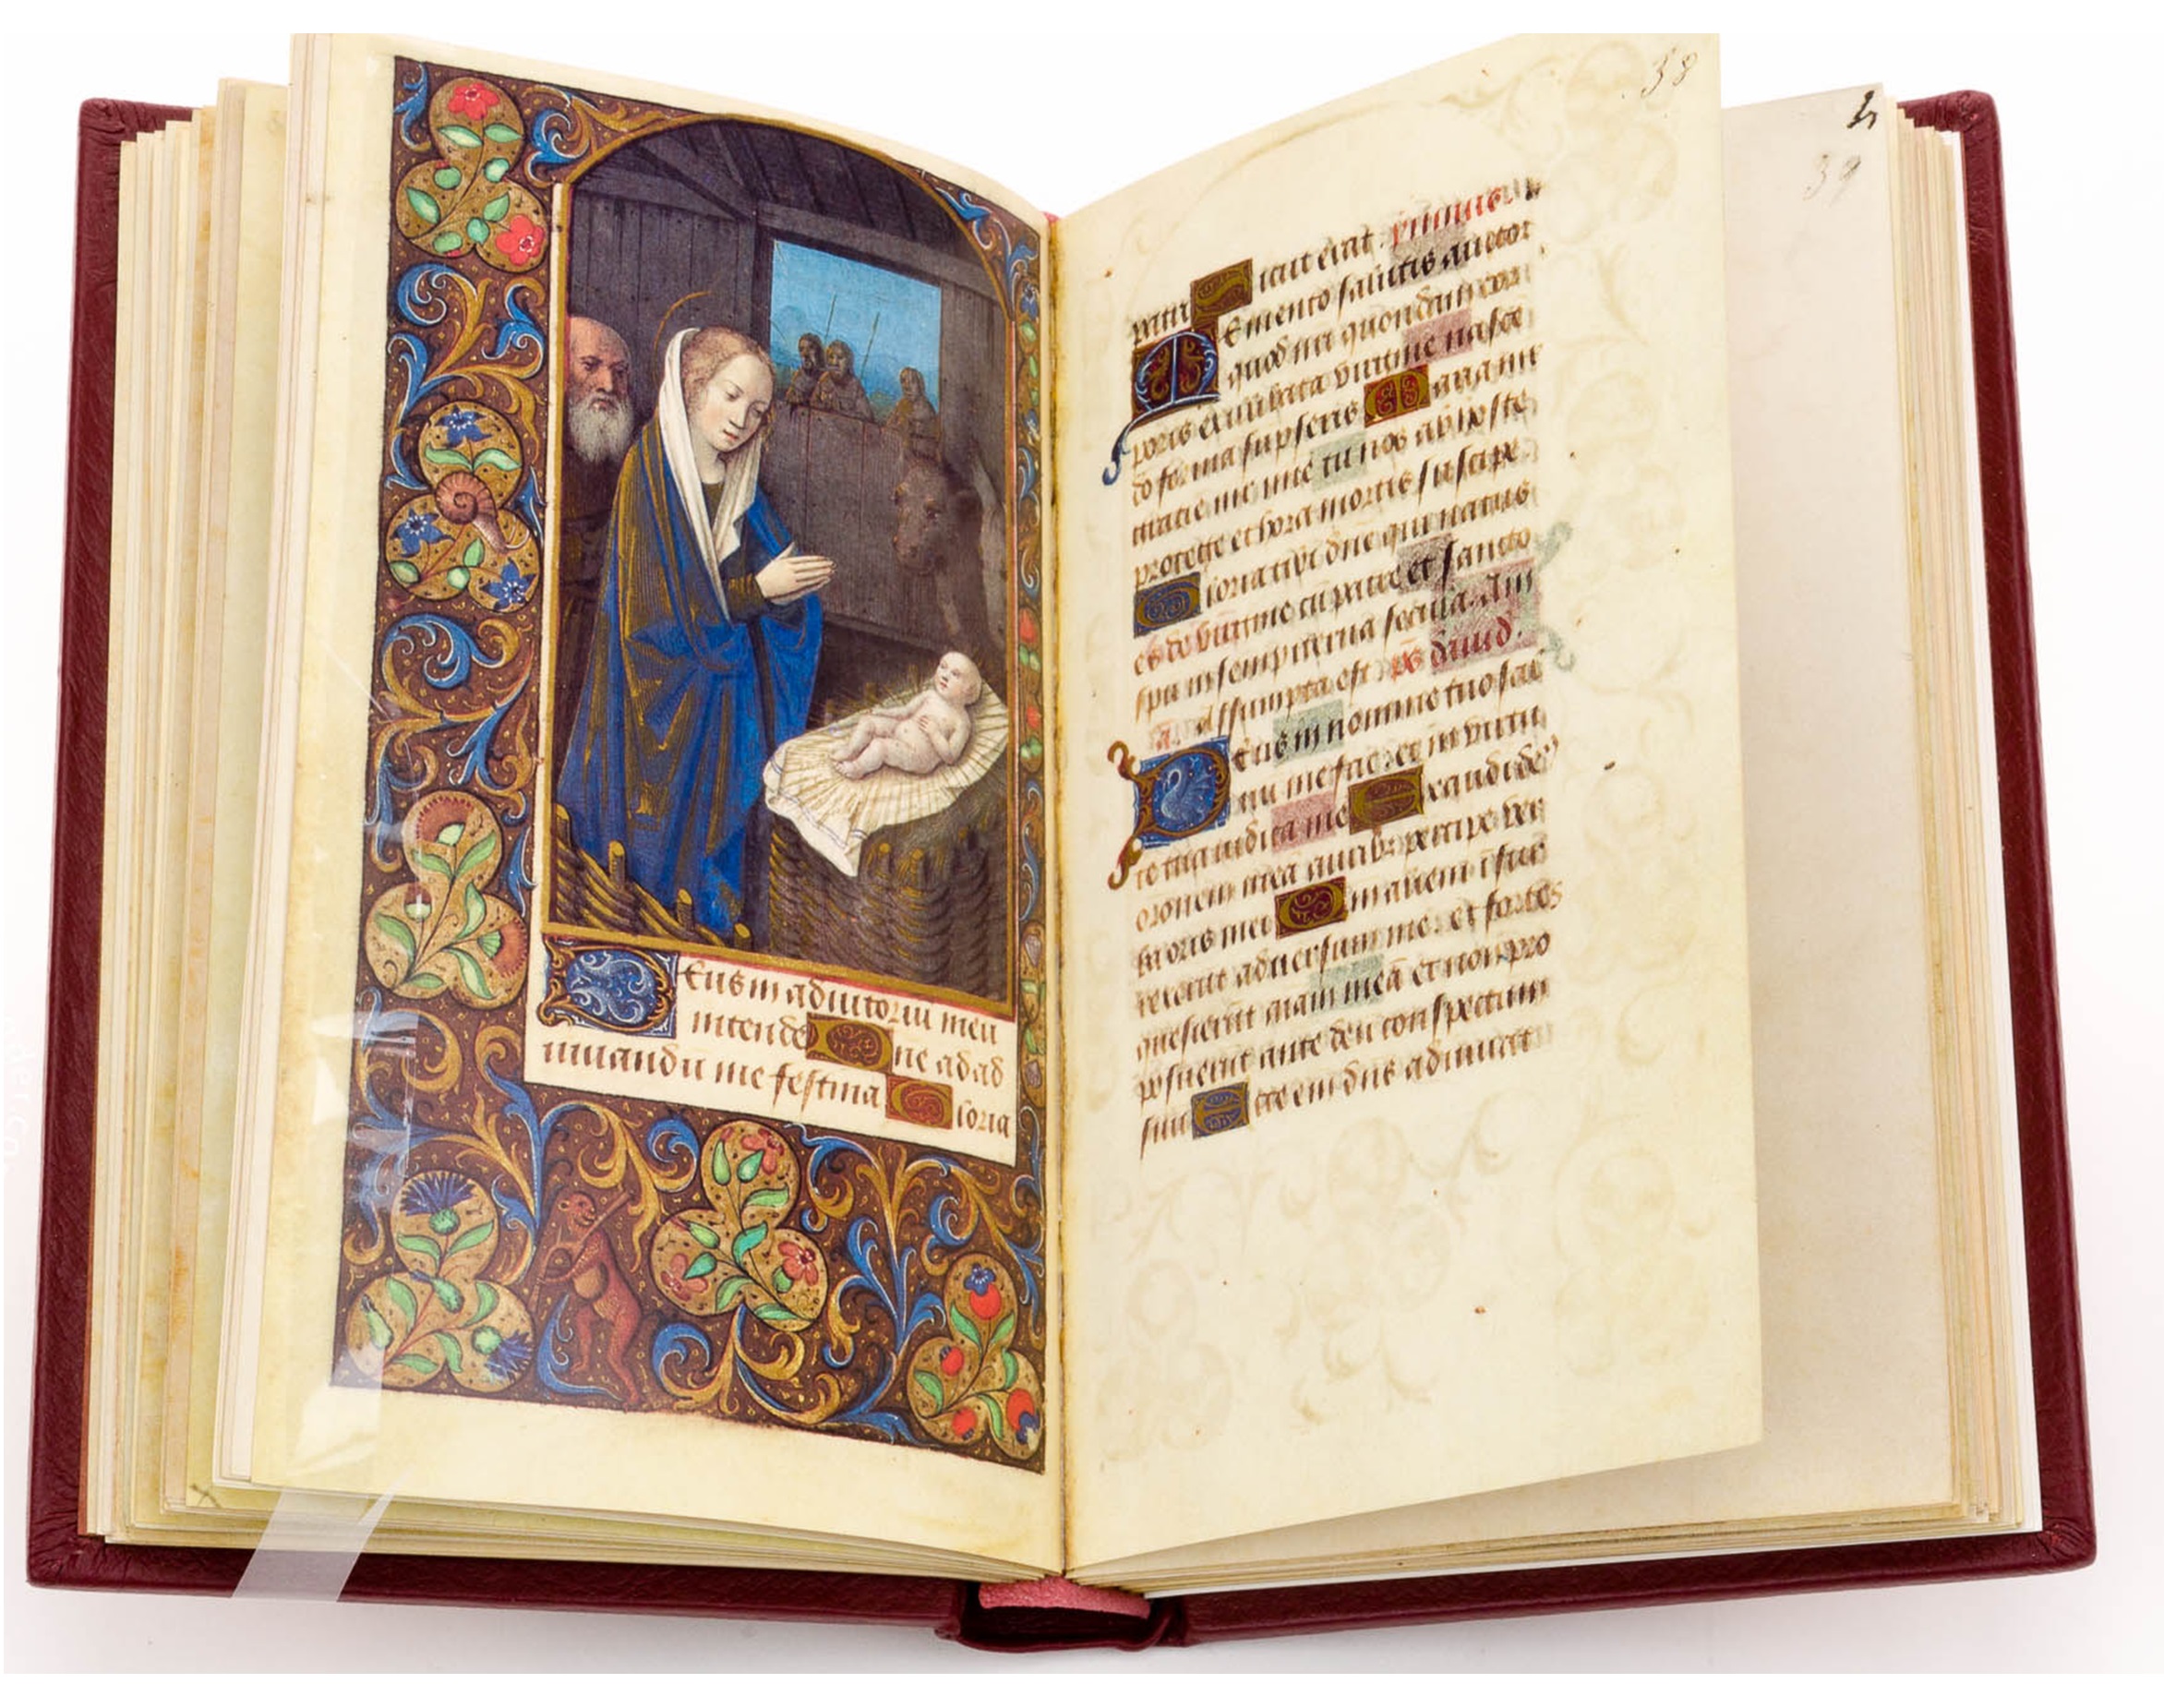 Eus in adiutoriu meu
intende Dne ad ad
iuuandu me festina Gloria
38
patri Sicut erat. ymnus.
Memento salutis auctor
quod nri quondam cor
poris ex illibata virgine nasce
do forma supseris Maria mr
gratie mr mie tu nos ab hoste
protege et hora mortis suscipe
Gloria tibi dne qui natus
es de virgine cu patre et sancto
spu in sempiterna secula. Am
a. assumpta est ps dauid.
Deus in nomine tuo sal
uu me fac: et in virtu
te tua iudica me Exaudi de9
oronem mea auribz percipe ver
ba oris mei Qm alieni isur
rexerut aduersum me: et fortes
quesierut aiam mea et non pro
posuerut ante deu conspectum
suu Ecce eni dns adiuuat
39